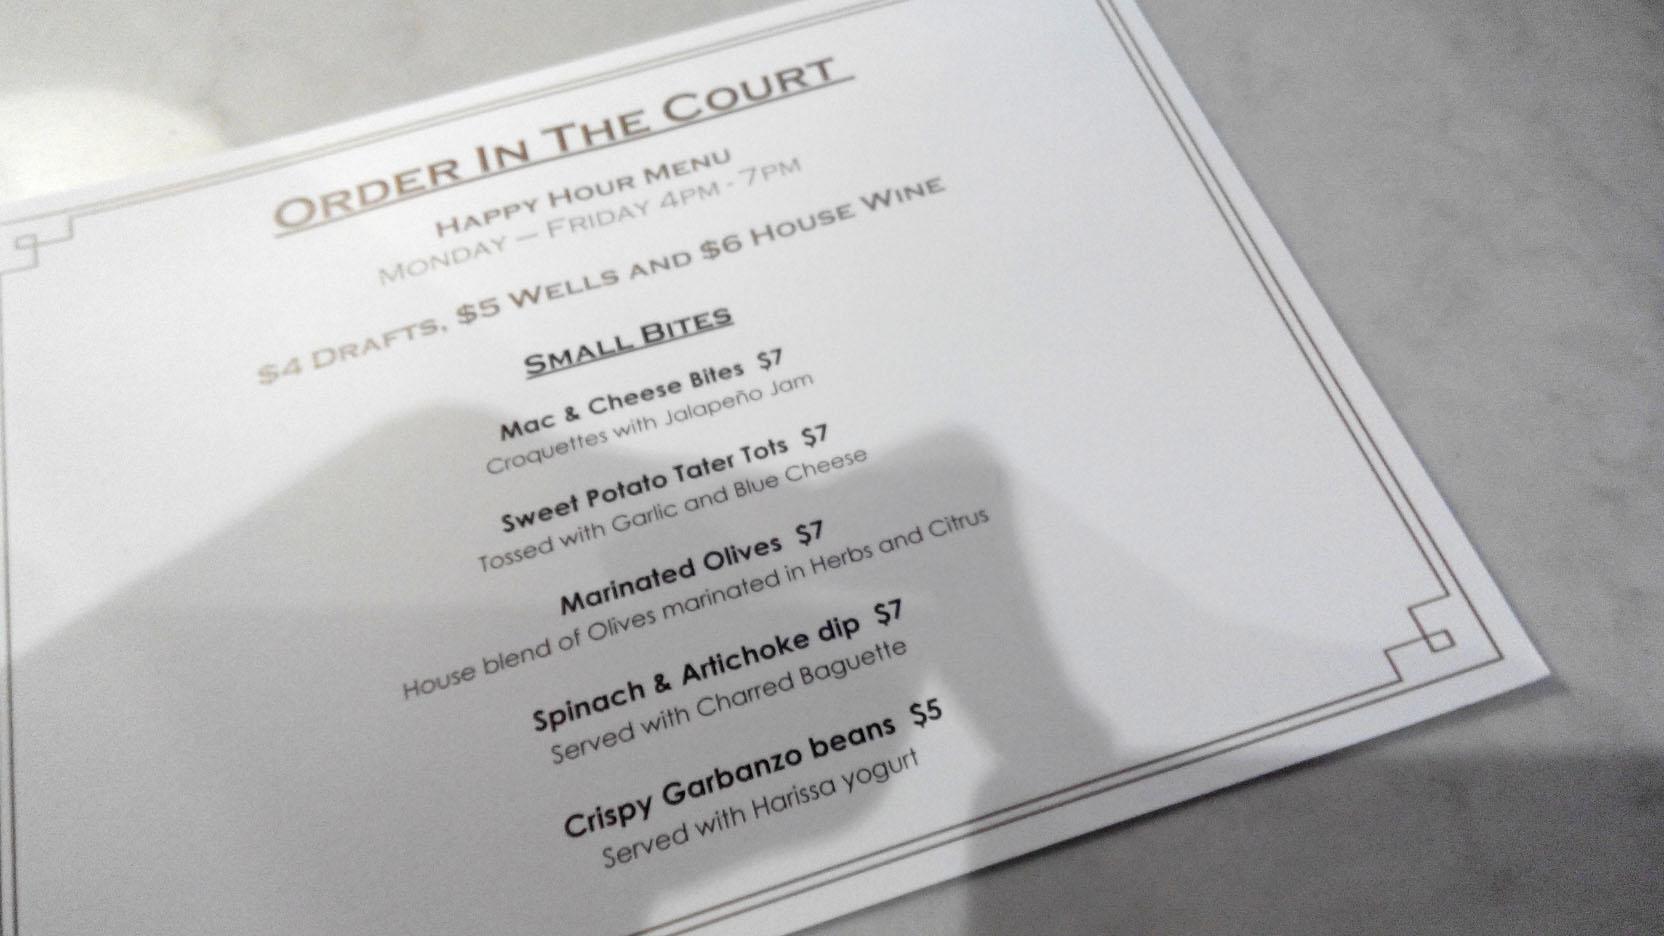 ORDER IN THE COURT
HAPPY HOUR MENU
MONDAY – FRIDAY 4PM - 7PM
$4 DRAFTS, $5 WELLS AND $6 HOUSE WINE
SMALL BITES
Mac & Cheese Bites $7
Croquettes with Jalapeño Jam
Sweet Potato Tater Tots $7
Tossed with Garlic and Blue Cheese
Marinated Olives $7
House blend of Olives marinated in Herbs and Citrus
Spinach & Artichoke dip $7
Served with Charred Baguette
Crispy Garbanzo beans $5
Served with Harissa yogurt